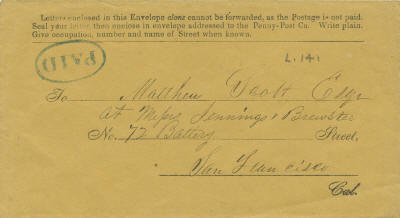 Letters enclosed in this Envelope alone cannot be forwarded, as the Postage is not paid.
Seal your letter, then enclose in envelope addressed to the Penny-Post Co. Write plain.
Give occupation, number and name of Street when known.
PAID
L. 141
To Matthew Esqr
At Messrs Jennings & Brewster
No. 72 Battery Street,
San Francisco
Cal.